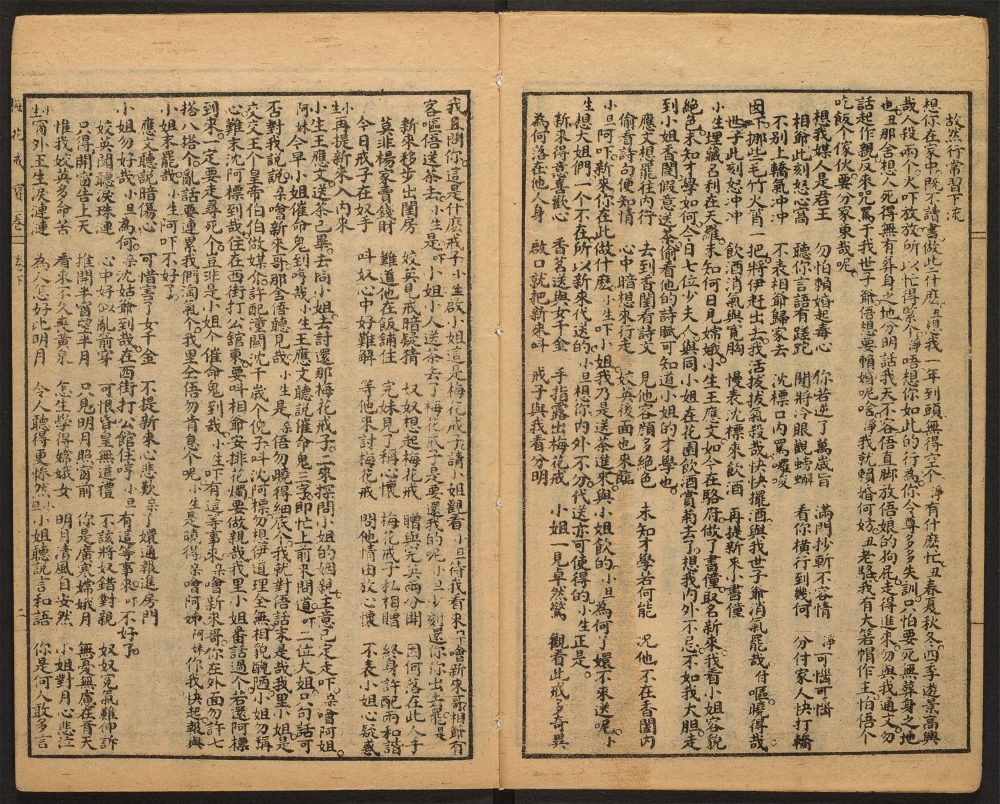 故然行常習下流
想你在家中既不讀書做些什麽丑想我一年到頭無得空个淨有什麽忙丑春夏秋冬四季遊景高興
哉人役兩个火吓放放所以忙得緊个淨唔想你如此的行為你令尊多多失訓只怕要死無葬身之地
也丑那舍想人死得無有葬身之地分明話我天不容唔直脚放唔娘的狗屁走得進來勿與我通文勿
話起作親反來咒罵于我世子爺唔想要賴婚呢啥淨我就賴婚何妨丑老騷我有大若帽作主怕唔个
吃飯个傢伙要分家東哉呢
想我媒人是君王 勿怕賴婚起毒心 你若逆了萬歲旨 滿門抄斬不容情 淨可惱可惱
相爺此刻怒心高 聽你言語有蹊跎 閒將冷眼觀螃蟹 看你橫行到幾何 分付家人快打轎
不别上轎氣冲冲 不表相爺歸家去 沈標口内罵囉唆
因下挪些毛竹火筲一把將伊赶出去我活拔拔氣殺哉快快擺酒與我世子爺消氣罷哉付嘔曉得哉
世子此刻怒冲冲 飲酒消氣與寛胸 慢表沈標來飲酒 再提新來小書僮
小生埋藏名利在天羅未知何日見嫦娥小生王應文如今在駱府做了書僮取名新來我看小姐容貌
絶色未知才學如何今日七位少夫人與同小姐在花園飲酒賞菊去了想我内外不忌不如我大胆走
到小姐香閨假意送茶偷看他的詩賦可知道小姐的才學也
應文想罷往内行 去到香閨看詩文 見他容顔多絶色 未知才學若何能 況他不在香閨内
偷看詩句便知情 心中暗想來行走 姣英後面也來臨
小旦阿吓新來你在此做什麽小生吓小姐我乃是送茶進來與小姐飲的小旦為何丁嬛不來送呢小
生想小姐們一个不在所以新來代送的小旦你内外不分代送亦可使得的小生正是
新來得意喜歡心 香茗送與女千金 手指露出梅花戒 小姐一見卓然驚 觀看此戒多奇異
為何落在他人身 啟口就把新來呌 戒子與我看分明
我且問你這是什麽戒子小生啟小姐這是梅花戒子請小姐觀看小旦待我看來吓噲新來哥相爺有
客嘔唔送茶去小生是吓小姐小人送茶去了梅花戒子是要還我的呢小旦少刻還你你出去罷小生是
新來移步出閨房 姣英見戒暗疑猜 奴奴想起梅花戒 贈與元兵兩分開 因何落在此人手
莫非楊家賣錢財 難道他在飯鋪住 完姝見了稱心懷 梅花戒子私相贈 終身許配兩和諧
今日戒子在奴手 呌奴心中好難解 等他來討梅花戒 問他情由放心懷 不表小姐心疑惑
再提新來入内來
小生小生王應文送茶已畢去問小姐去討還那梅花戒子二來探問小姐的姻親主意已定走吓朵噲阿姐
阿妹今早小姐催命鬼到哼哉小生王應文聽説催命鬼三字即忙上前來問道吓二位大姐只句話可
否對我説説朵噲新來哥那舍唔聽見哉小生是朵唔勿曉得細底个我就對唔話末是哉我里小姐是
交文王个皇帝伯伯做媒个許配潼關沈千歳个倪子呌沈阿標勿想伊道理全無相貌醜陋小姐勿稱
心難末沈阿標到哉住在西街打公館東要呌相爺安排花燭要做親哉我里小姐畨話過个若還阿標
到來一定要走尋死个豈非是小姐个催命鬼到哉小生吓有這等事來朵噲新來哥你在外面勿許七
搭八搭个亂話要連累我們淘氣个我里全唔勿肯息个呢小生是曉得朵噲阿姊阿妹你我快起報與
小姐知未罷哉小生阿吓不好了
應文聽説暗傷心 可惜害了女千金 不提新來心悲歎 朵了嬛通報進房門
小姐勿好哉小旦為何朵沈姑爺到哉在西街打公館住哼小旦有這等事來吓不好了
姣英聞聽淚珠連 心中好似亂箭穿 可恨昏皇無道禮 不該將奴錯對親 奴奴冤氣難伸訴
只得開窗告上天 推開半窗空半月 只見明月照窗前 你是廣寒嫦娥月 無憂無慮在青天
惟我姣英多命苦 看來不久喪黄泉 怎生學得嫦娥女 明月清風自安然 小姐對月心悲泣
小生窗外王生淚漣漣 為人心好比明月 令人聽得更慘然 小旦小姐聽説言和語 你是何人敢多言